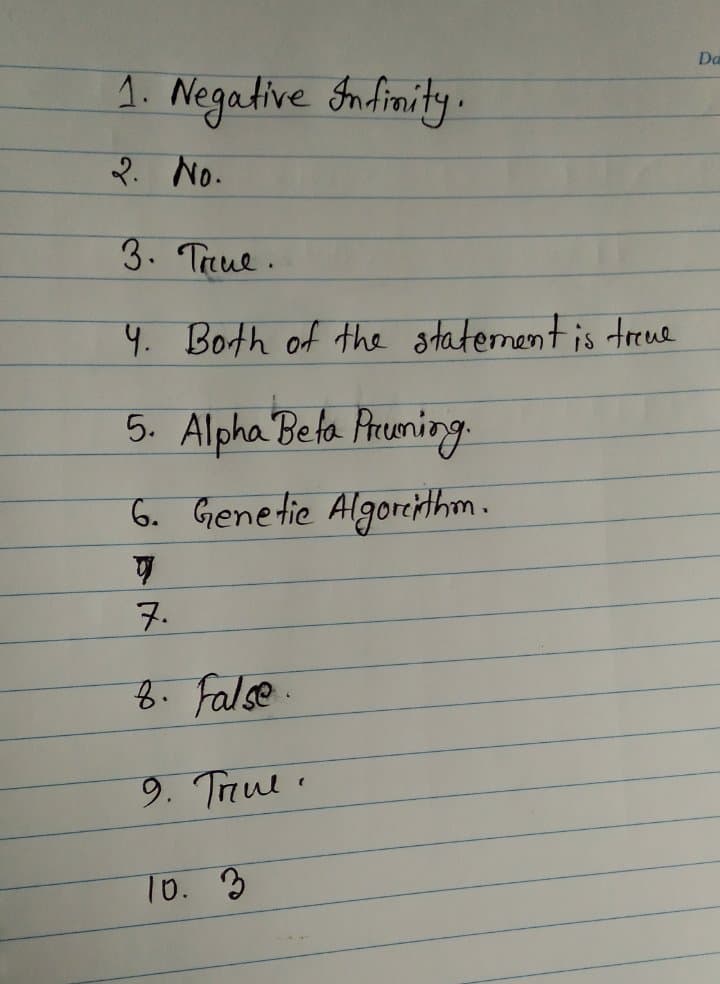 Da
1. Negative Infinity.
2. No.
3. True.
4. Both of the statement is true
5. Alpha Beta Pruning.
6. Genetic Algorithm.
7.
8. False.
9. True.
10. 3